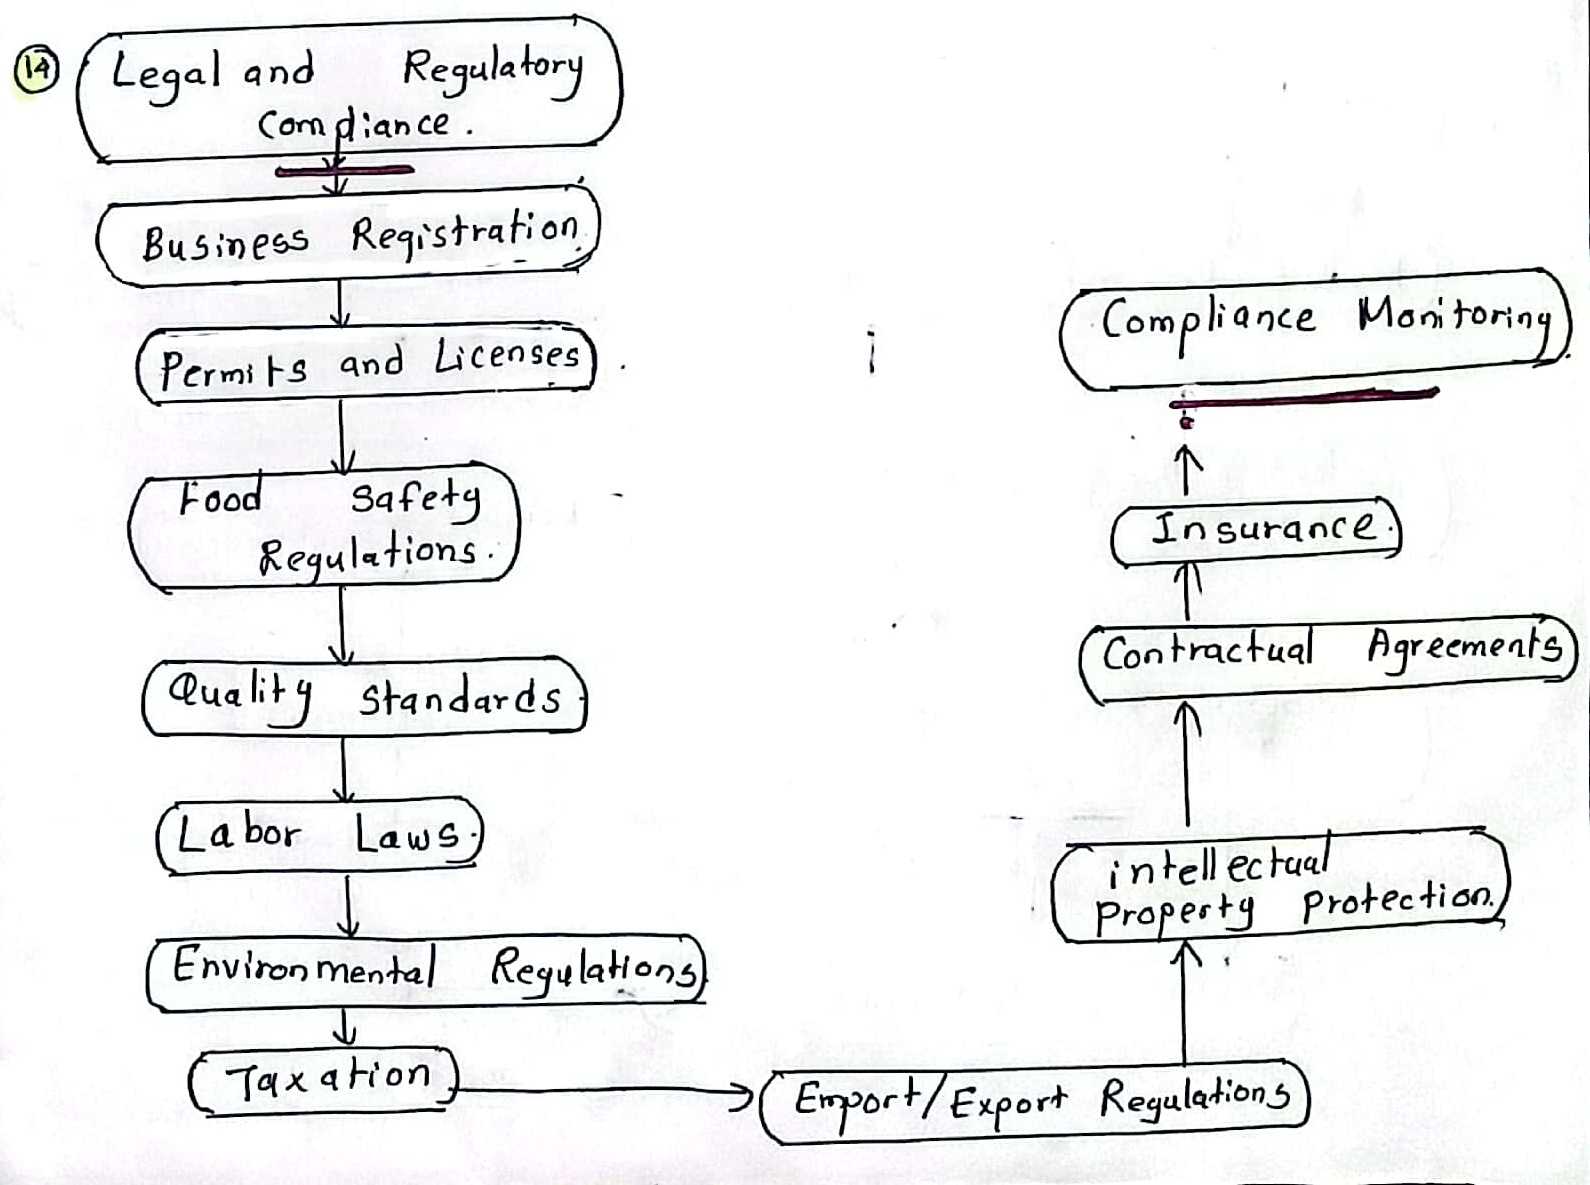 14
Legal and Regulatory
Compliance.
Business Registration
Permits and Licenses
Food Safety
Regulations.
Quality Standards
Labor Laws.
Environmental Regulations
Taxation
Emport/Export Regulations
intellectual
Property Protection.
Contractual Agreements
Insurance.
Compliance Monitoring